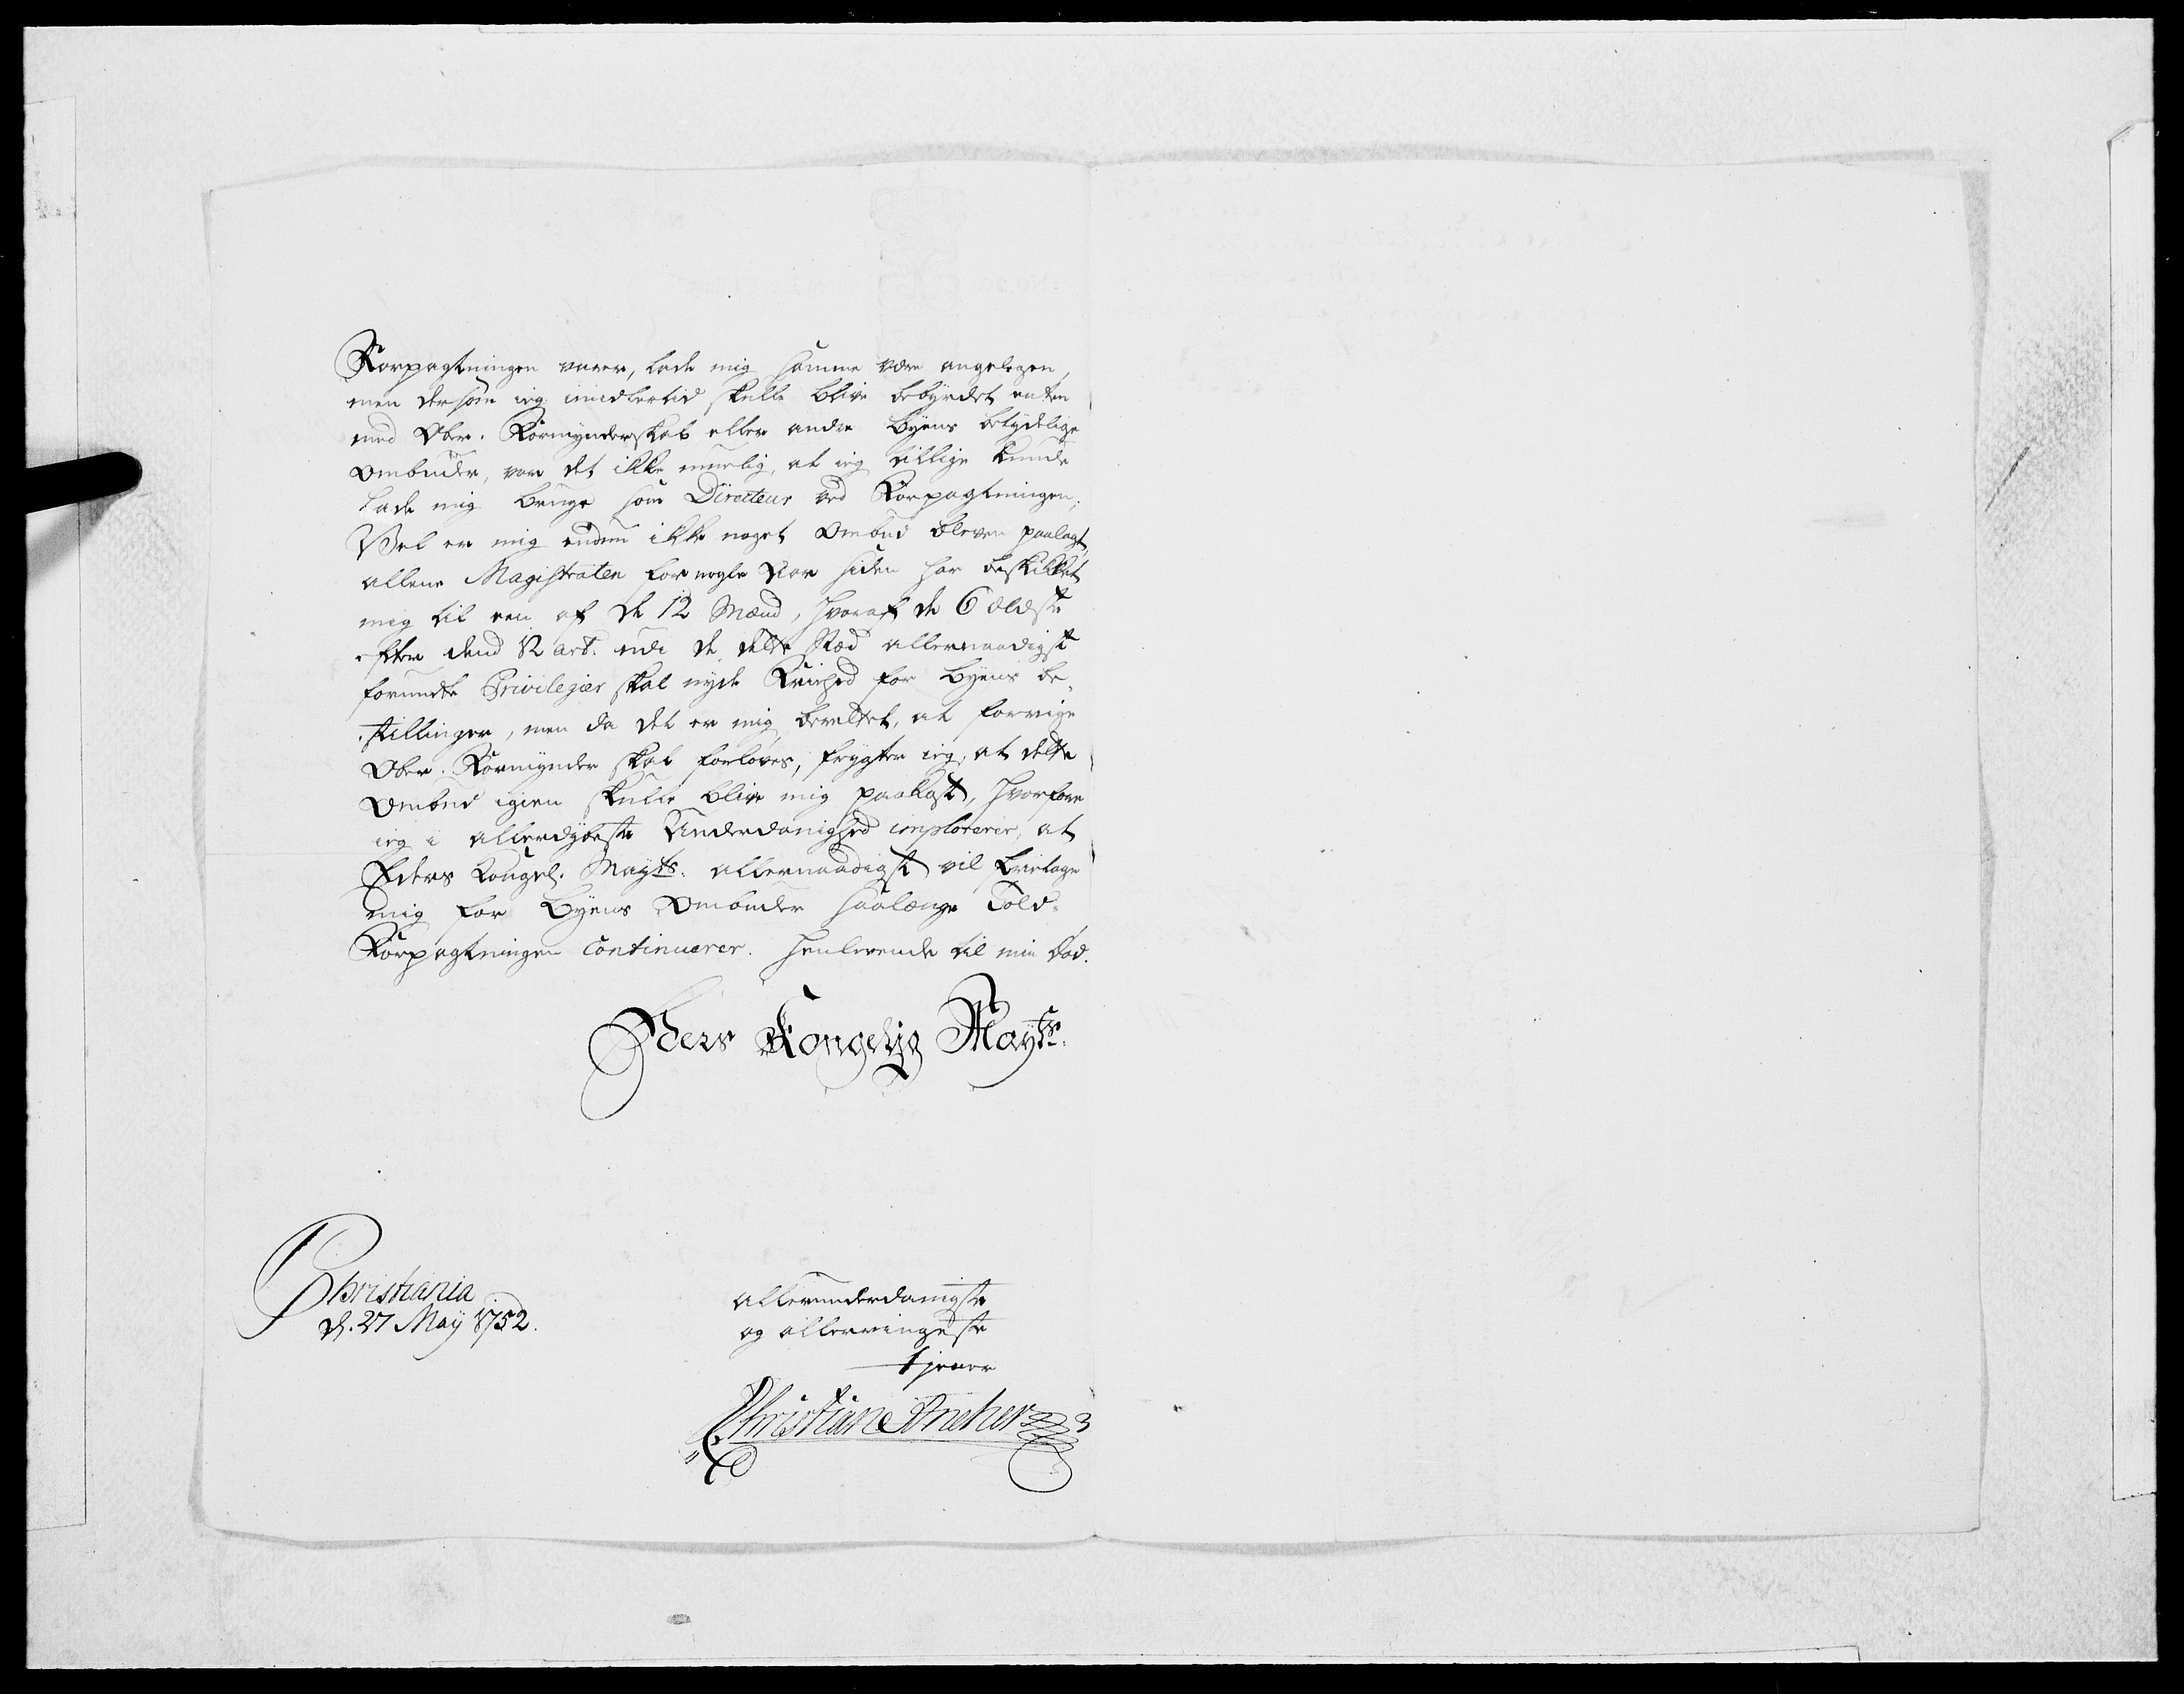 Forpagtningen varer, lade mig samme være angelegen,
men dersom ieg imidlertid skulle blive bebyrdet enten
med Ober-Formynderskab eller andre Byens betydelige
Ombuder, var det ikke muelig, at ieg tillige kunde
lade mig bruge som Directeur ved Forpagtningen;
Vel er mig endnu ikke noget Ombud bleven paalagt,
allene Magistraten for nogle Aar siden har beskikket
mig til een af de 12 Mænd, hvoraf de 6 ældste
efter dend 12 art. udi de dette Stæd allernaadigst
forundte Privilegier skal nyde Friehed for Byens be-
stillinger, men da det er mig berettet, at forrige
Ober-Formynder skal forløves, frygter ieg, at dette
Ombud igien skulle blive mig paakast, hvorfore
ieg i allerdybeste Underdanighed imploverer, at
Eders Kongel. Mayts. allernaadigst vil fritage
mig for Byens Ombuder saalænge Told-
Forpagtningen Continuerer. Henlevende til min Død.
Eders Kongelig Mayts.
Christiania
d. 27 May 1752.
allerunderdanigste
og allerringeste
tjener
Christian Ancher